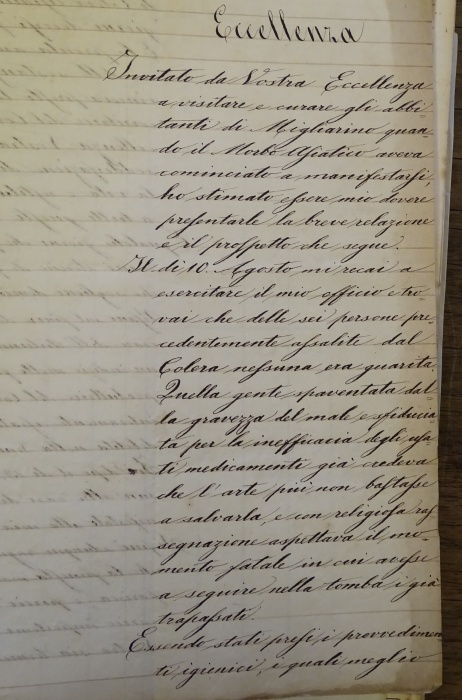 Eccellenza
Invitato da Vostra Eccellenza
a visitare e curare gli abbi-
tanti di Migliarino quan-
do il Morbo Asiatico aveva
cominciato a manifestarsi,
ho stimato essere mio dovere
presentarle la breve relazione
e il prospetto che segue.
Il dì 10. Agosto mi recai a
esercitare il mio officio e tro-
vai che delle sei persone pre-
cedentemente assalite dal
Colera nessuna era guarita.
Quella gente spaventata dal-
la gravezza del male e sfiducia-
ta per la inefficacia degli usa-
ti medicamenti già credeva
che l'arte più non bastasse
a salvarla, e con religiosa ras-
segnazione aspettava il mo-
mento fatale in cui avesse
a seguire nella tomba i già
trapassati.
Essendo stati presi, i provvedimen-
ti igienici, i quali meglio